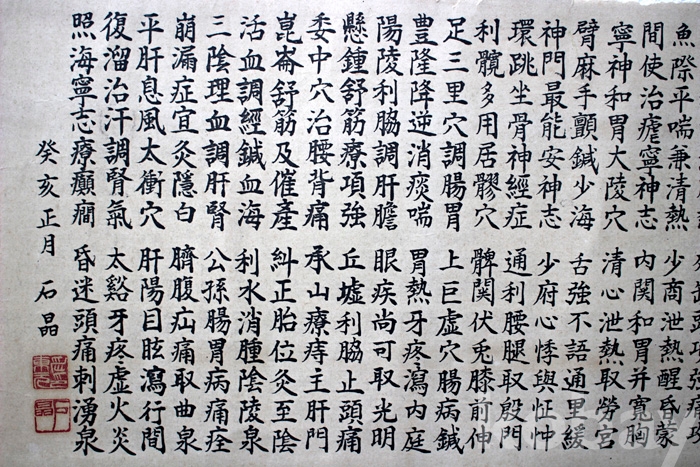 魚際平喘兼清熱 少商泄熱醒昏蒙
間使治瘧寧神志 内関和胃并寬胸
寧神和胃大陵穴 清心泄熱取勞宮
臂麻手顫鍼少海 舌強不語通里緩
神門最能安神志 少府心悸與怔忡
環跳坐骨神經症 通利腰腿取殷門
利髖多用居髎穴 髀関伏兔膝前伸
足三里穴調腸胃 上巨虛穴腸病鍼
豐隆降逆消痰喘 胃熱牙疼瀉内庭
陽陵利脇調肝膽 眼疾尚可取光明
懸鍾舒筋療項強 丘墟利脇止頭痛
委中穴治腰背痛 承山療痔主肝門
崑崙舒筋及催產 糾正胎位灸至陰
活血調經鍼血海 利水消腫陰陵泉
三陰理血調肝腎 公孫腸胃病痛痊
崩漏症宜灸隱白 臍腹疝痛取曲泉
平肝息風太衝穴 肝陽目眩瀉行間
復溜治汗調腎氣 太谿牙疼虛火炎
照海寧志療癲癇 昏迷頭痛刺湧泉
癸亥正月 石晶